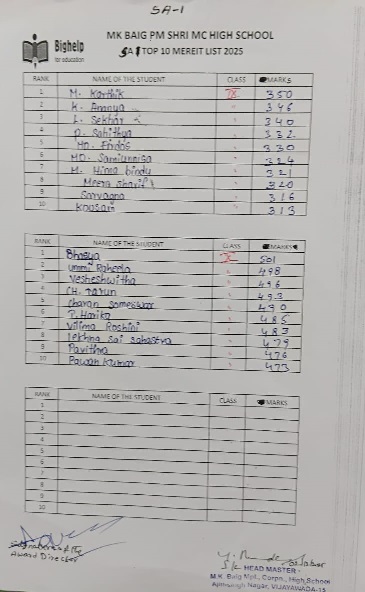 SA-1
Bighelp
for education
MK BAIG PM SHRI MC HIGH SCHOOL
SA 1 TOP 10 MEREIT LIST 2025
RANK NAME OF THE STUDENT CLASS MARKS
1 M. Karthik IX 350
2 K. Ananya " 346
3 L. Sekhar " 340
4 P. Sahithya " 332
5 MD. Firdos " 330
6 MD. Samiunnisa " 324
7 M. Hima bindu " 321
8 Meera sharif " 320
9 Sarvagna " 316
10 Kousar " 313
RANK NAME OF THE STUDENT CLASS MARKS
1 Bhavya IX 501
2 Ummi Raheela " 498
3 Yesheshwitha " 496
4 CH. Tarun " 493
5 Charan someswar " 490
6 P. Harika " 485
7 Vilima Roshini " 483
8 Lekhna sai sahastra " 479
9 Pavithra " 476
10 Pawan Kumar " 473
RANK NAME OF THE STUDENT CLASS MARKS
1
2
3
4
5
6
7
8
9
10
Signature of the
Award Director
HEAD MASTER
M.K. Baig Mpl. Corpn. High School
Ajithsingh Nagar, VIJAYAWADA-15